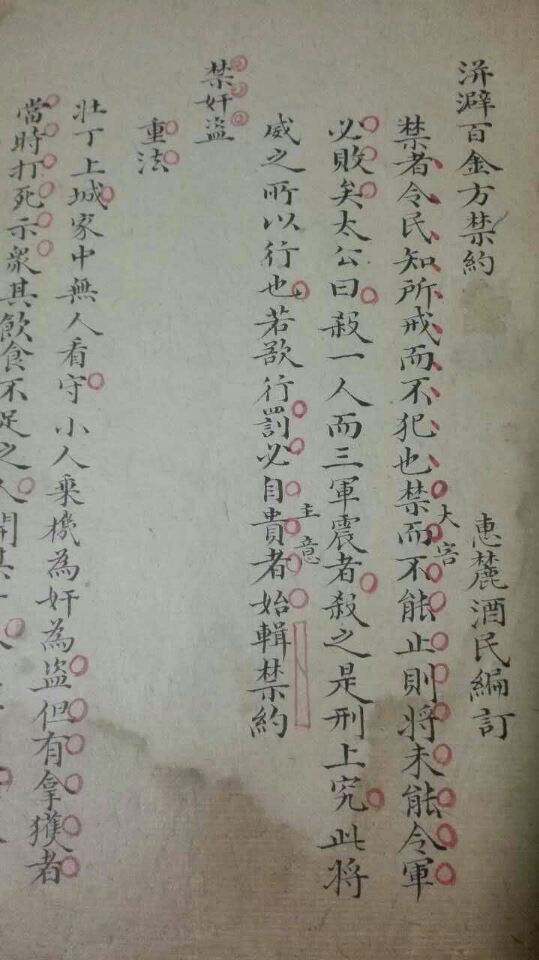 洴澼百金方禁約
惠麓酒民編訂
禁者令民知所戒而不犯也禁而不能止則将未能令軍
大害
必敗矣太公曰殺一人而三軍震者殺之是刑上究此将
威之所以行也若欲行罰必自貴者始輯禁約
主意
禁奸盜
重法
壯丁上城家中無人看守小人乘機為奸為盜但有拿獲者
當時打死示眾其飲食不足之人開其